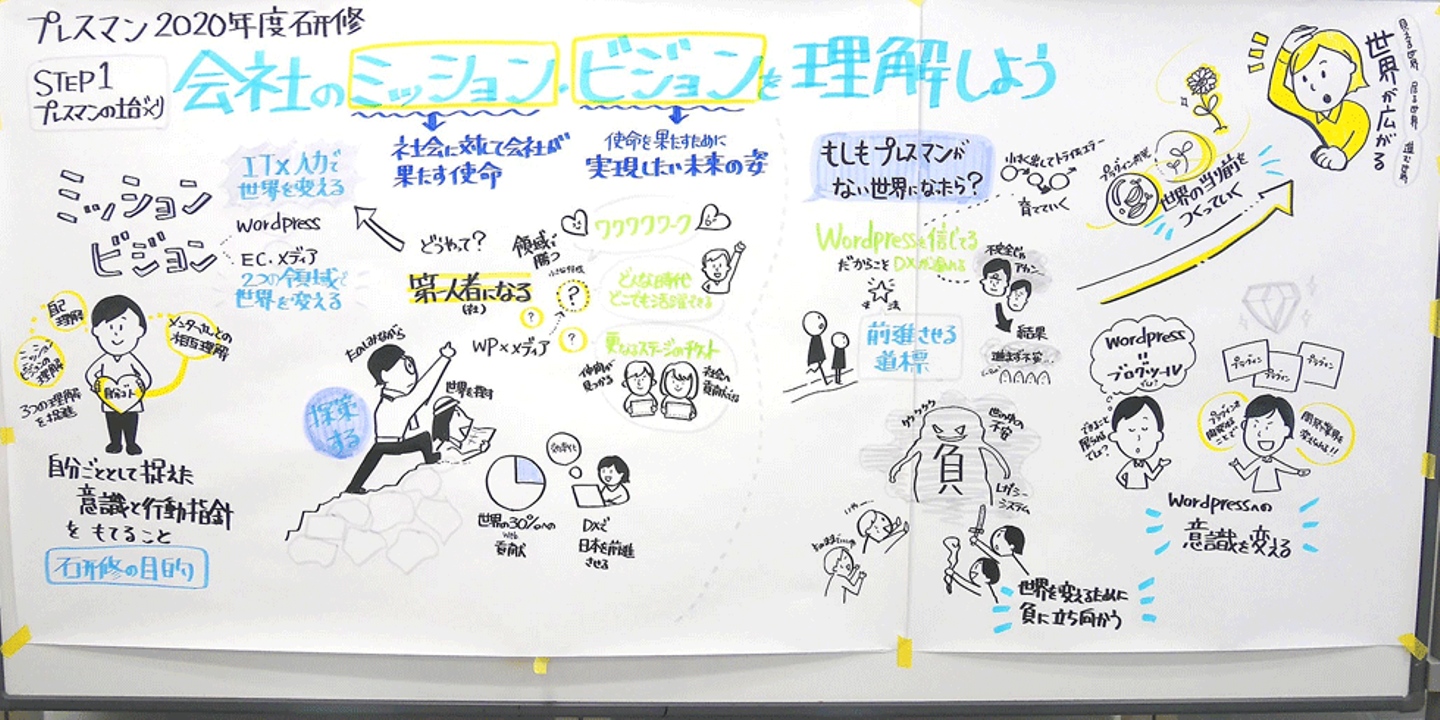 プレスマン2020年度研修
STEP1
プレスマンの
会社のミッション・ビジョンを理解しよう
社会に対して会社が
果たす使命
使命を果たすために
実現したい未来の姿
ミッション
ビジョン
IT×人力で
世界を変える
Wordpress
EC・メディア
2つの領域で
世界を変える
どうやって?
第一人者になる
(社)
WP×メディア
領域で
勝つ
?
?
?
ワクワクワーク
どんな時代
どこでも活躍できる
更なるステージのチケット
仲間が
見つかる
社会へ
自己
理解
メンターさんとの
相互理解
ミッション
ビジョンの
理解
3つの理解
を促進
自分ゴト
自分ごととして捉えた
意識と行動指針
をもてること
研修の目的
たのしみながら
探索
する
世界を探す
世界の30%への
Web
貢献
DXで
日本を前進
させる
もしもプレスマンが
ない世界になったら?
小さく出してトライ&エラー
育てていく
世界の当り前を
つくっていく
世界が広がる
Wordpressを信じてる
だからこそDXが
前進させる
道標
不安全じゃ
アカン…
結果
進まず不安…
世の中の
不安
負
レガシー
システム
世界を変えるために
負に立ち向かう
Wordpress
=
ブログツール
では?
できること
限られる
でしょ?
プラグイン
プラグイン
プラグイン
プラグインを
開発する
ことで
開発業界を
変えられる!!
Wordpressへの
意識を変える